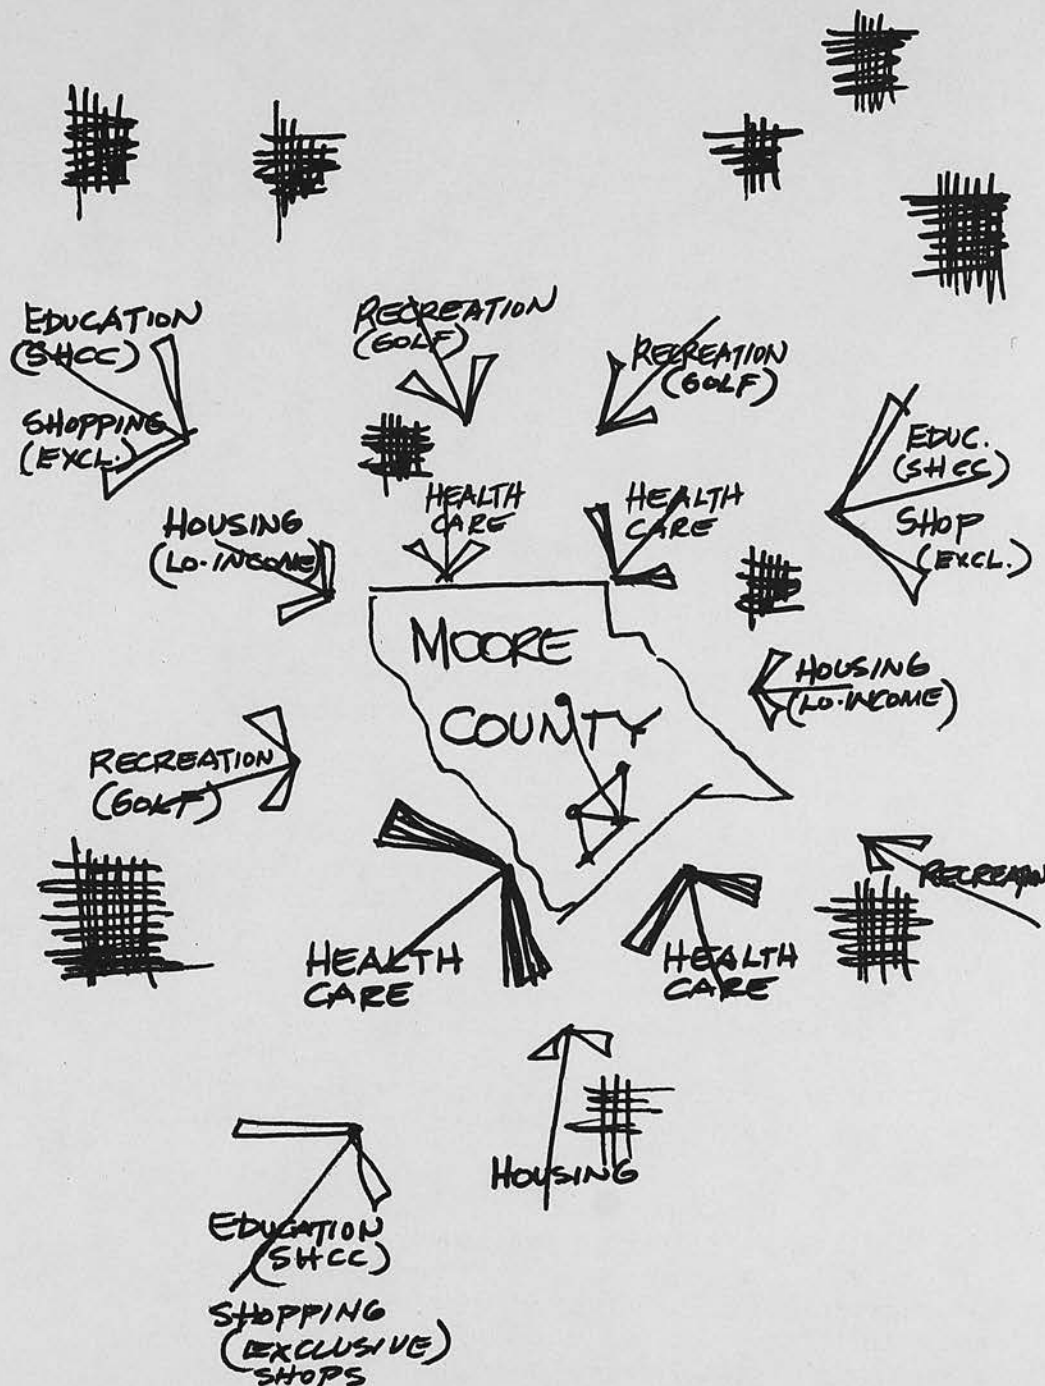 EDUCATION
(SHCC)
SHOPPING
(EXCL.)
RECREATION
(GOLF)
RECREATION
(GOLF)
EDUC.
(SHCC)
SHOP
(EXCL.)
HOUSING
(LO-INCOME)
HEALTH
CARE
HEALTH
CARE
MOORE
COUNTY
HOUSING
(LO-INCOME)
RECREATION
(GOLF)
RECREATION
HEALTH
CARE
HEALTH
CARE
HOUSING
EDUCATION
(SHCC)
SHOPPING
(EXCLUSIVE)
SHOPS